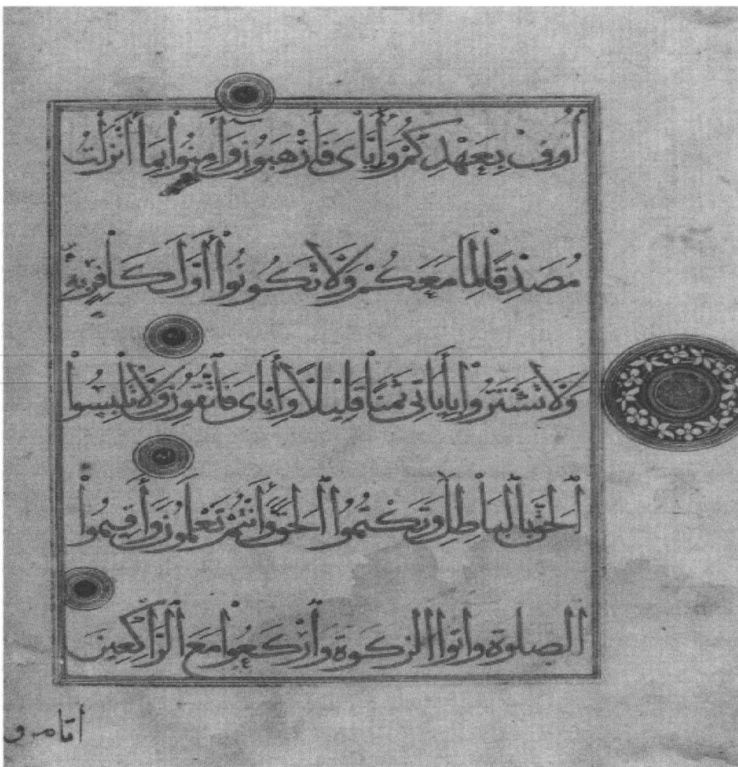 أُوفِ بِعَهْدِكُمْ وَإِيَّاىَ فَٱرْهَبُونِ وَآمِنُوا بِمَا أَنْزَلْتُ
مُصَدِّقًا لِمَا مَعَكُمْ وَلَا تَكُونُوا أَوَّلَ كَافِرٍ بِهِ
وَلَا تَشْتَرُوا بِآيَاتِى ثَمَنًا قَلِيلًا وَإِيَّاىَ فَٱتَّقُونِ وَلَا تَلْبِسُوا
ٱلْحَقَّ بِٱلْبَاطِلِ وَتَكْتُمُوا ٱلْحَقَّ وَأَنْتُمْ تَعْلَمُونَ وَأَقِيمُوا
ٱلصلوة واتوا ٱلزكوة وَٱرْكَعُوا مَعَ ٱلرَّاكِعِينَ
أتامرو